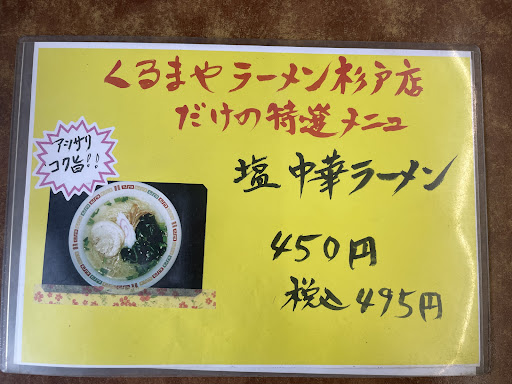 くるまやラーメン杉戸店
だけの特選メニュー
アッサリ
コク旨!!
塩 中華ラーメン
450円
税込495円